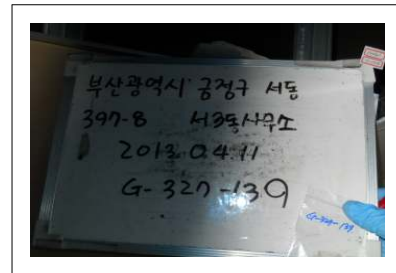 부산광역시 금정구 서동
397-8 서3동사무소
2013.04.11
G-327-139